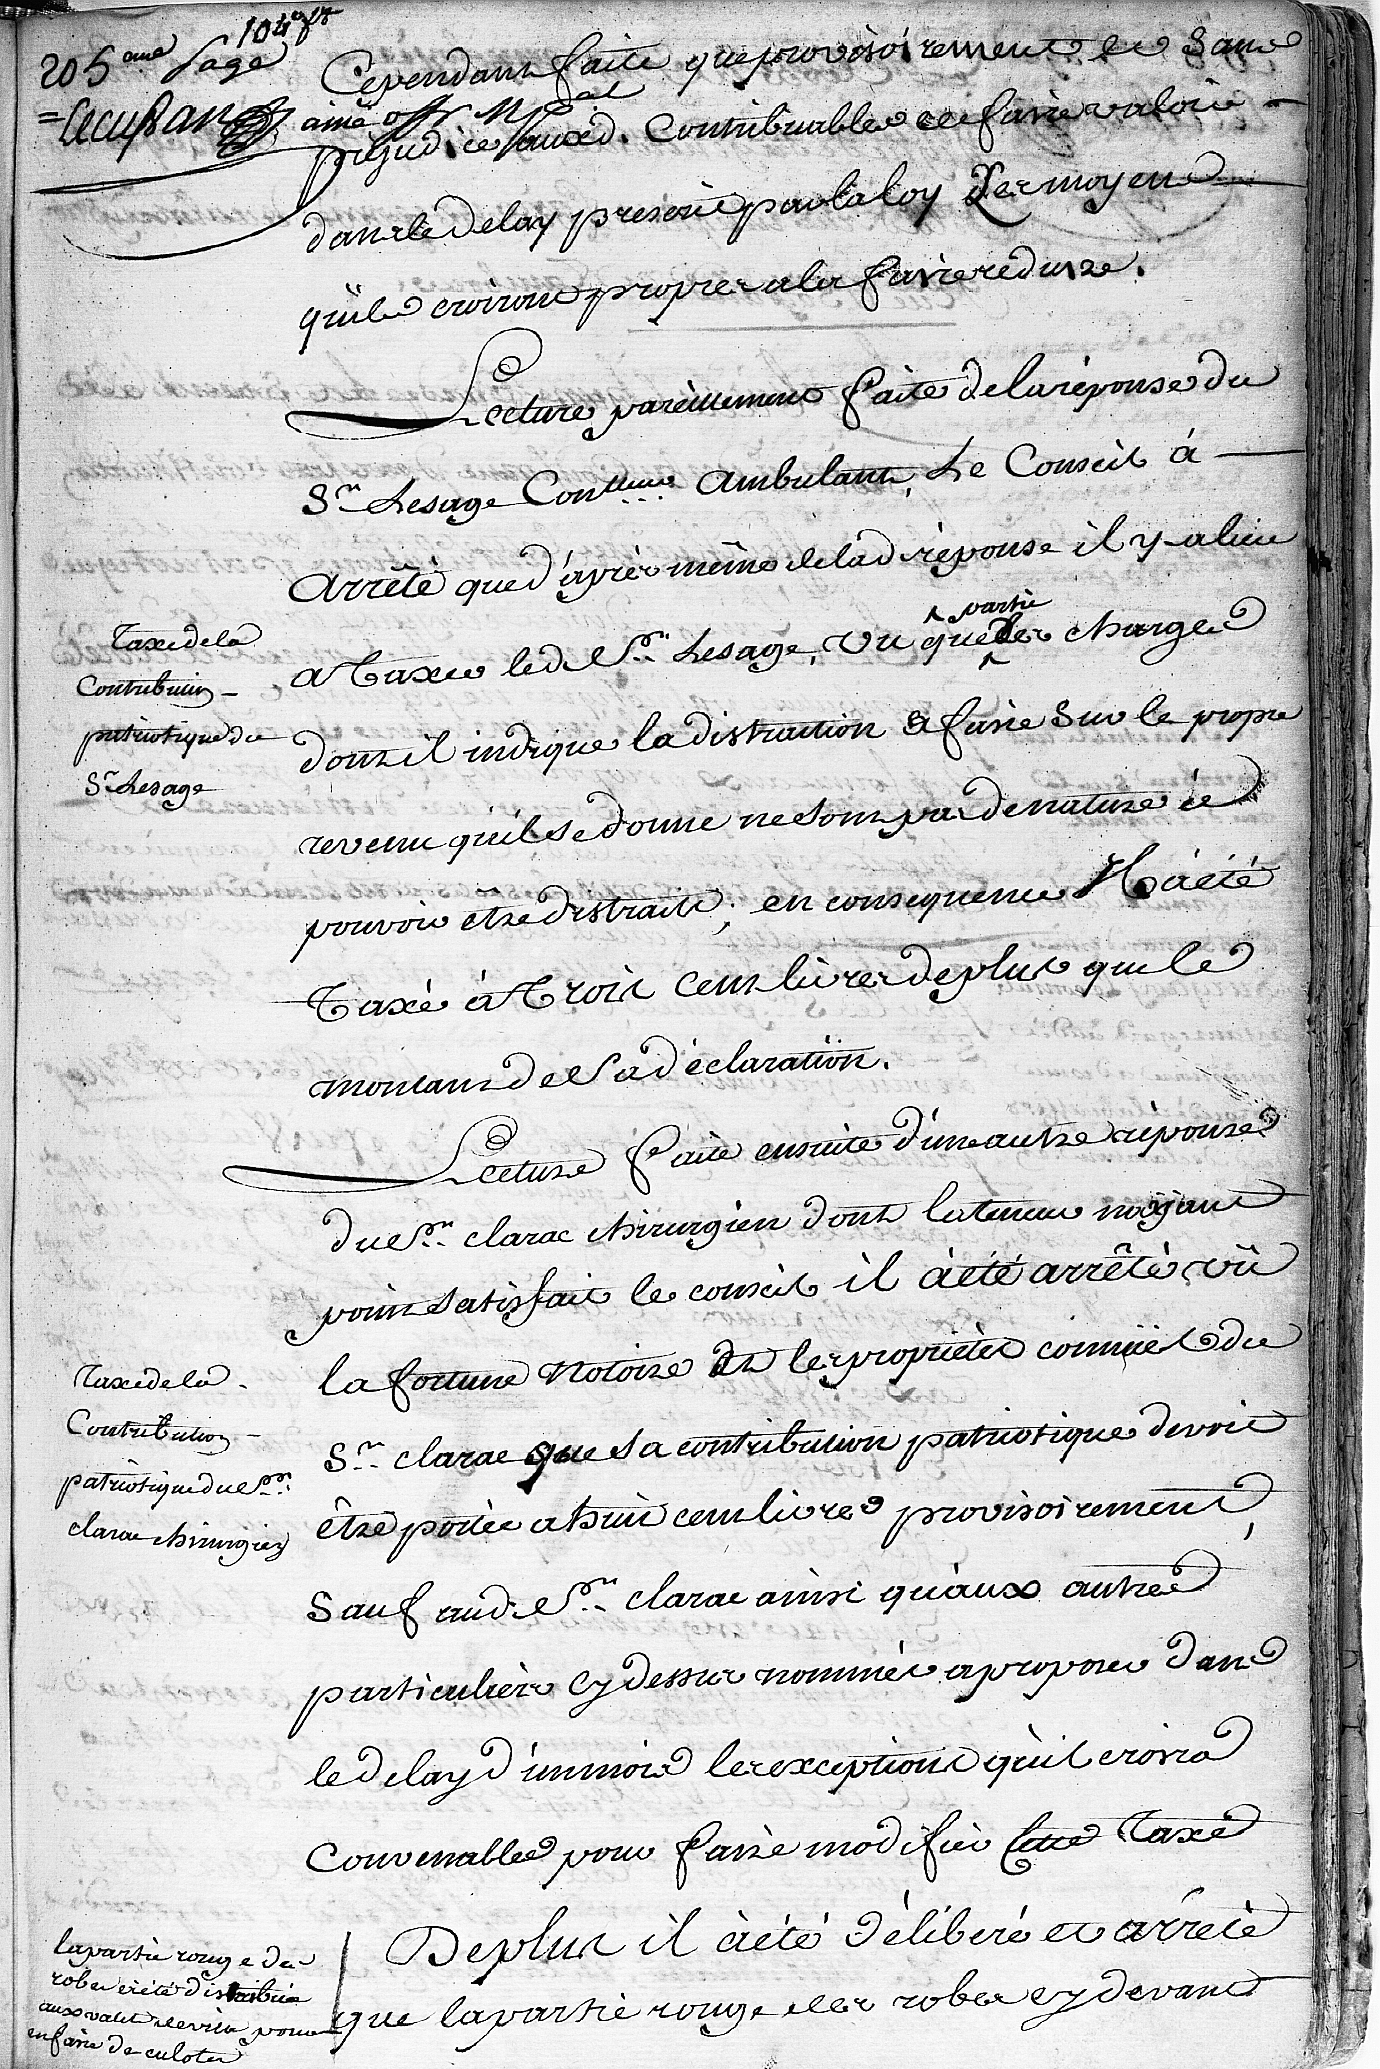 205eme page
104 ft
Cependant faite que provisoirement et Sans
prejudice auxd. Contribuables de faire valoir
dans le delay prescrit par la loy Les moyens
quils croiront propres a la faire reduire.
Lecture pareillement faite de la réponse du
Sr Lesage Conlleur ambulant, Le Conseil à
Arrêté que d'après même de lad réponse il y a lieu
a Taxer led Sr Lesage, vu que partie des charges
dont il indique la distraction a faire Sur le propre
revenu qu'il se donne ne sont pas de nature à
pouvoir être distraits; en consequence Il à été
Taxé à Trois Cent livres de plus que le
montant de Sa déclaration.
Taxe de la
Contribution
patriotique du
Sr Lesage
Lecture faite ensuite d'une autre réponse
du Sr clarac chirurgien dont la teneur nayant
point satisfait le conseil il à été arrêté, vû
la fortune notoire et les propriétés connües du
Sr clarac que sa contribution patriotique devoit
être portée a huit cent livres provisoirement,
Sauf aud Sr clarac ainsi qu'aux autres
particuliers cy dessus nommés a proposer dans
le delay d'un mois les exceptions qu'il croira
Convenables pour faire modifier cette Taxe
Taxe de la
Contribution
patriotique du Sr
clarac chirurgien
De plus il à été délibéré et arrété
que la partie rouge des robes cy devant
la partie rouge des
robes a été distribuée
aux valets de ville pour
en faire des culotes